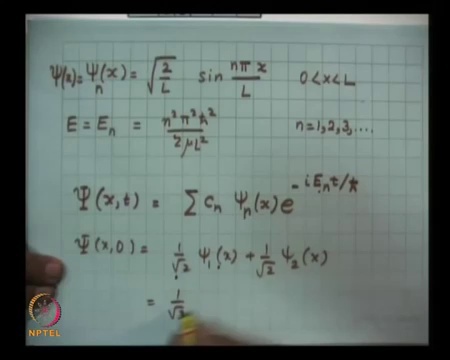 Ψ(x) = Ψₙ(x) = √(2/L) sin nπx/L 0<x<L
E = Eₙ = n²π²ħ²/2μL² n=1,2,3,....
Ψ(x,t) = Σ cₙ Ψₙ(x) e^(-iEₙt/ħ)
Ψ(x,0) = 1/√2 Ψ₁(x) + 1/√2 Ψ₂(x)
= 1/√2
NPTEL